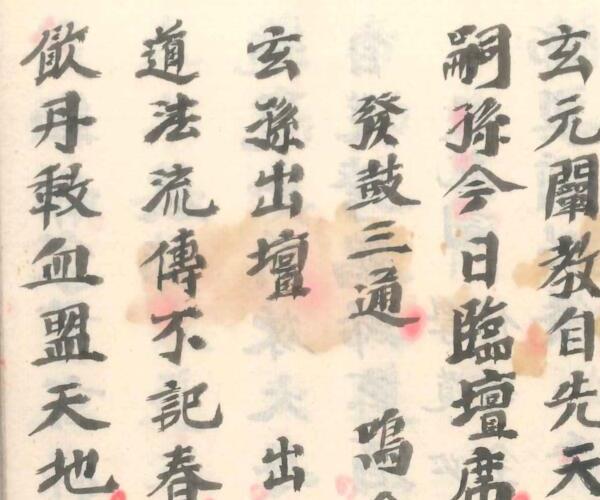 玄元闡教自先天
嗣孫今日臨壇席
發鼓三通 鳴
玄孫出壇 出
道法流傳不記春
歃丹㪇血盟天地